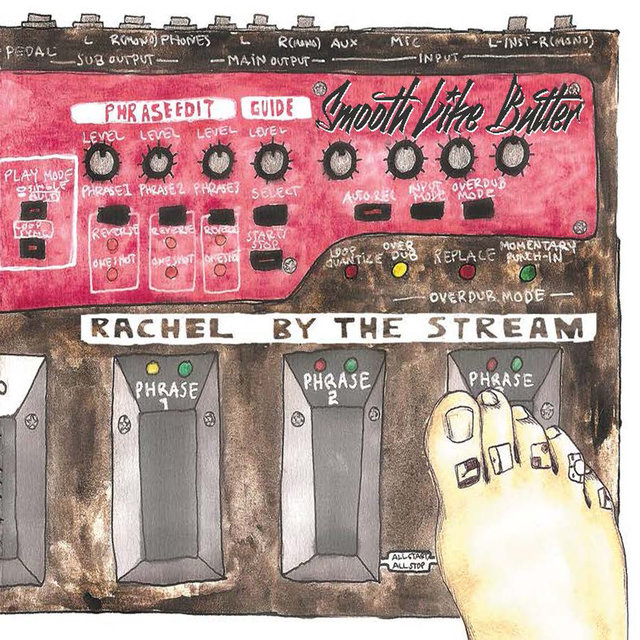 PEDAL
L R(MONO) PHONES L R(MONO) AUX MIC L-INST-R(MONO)
SUB OUTPUT MAIN OUTPUT INPUT
PHRASE EDIT GUIDE
Smooth Like Butter
LEVEL LEVEL LEVEL LEVEL
PLAY MODE
PHRASE1 PHRASE2 PHRASE3 SELECT
SINGLE
MULTI
AUTO REC INPUT MODE OVERDUB MODE
LOOP
SYNC
REVERSE REVERSE REVERSE START/STOP
ONE SHOT ONE SHOT ONE SHOT
LOOP QUANTIZE OVER DUB REPLACE MOMENTARY PUNCH-IN
OVERDUB MODE
RACHEL BY THE STREAM
PHRASE 1
PHRASE 2
PHRASE
ALL START
ALL STOP